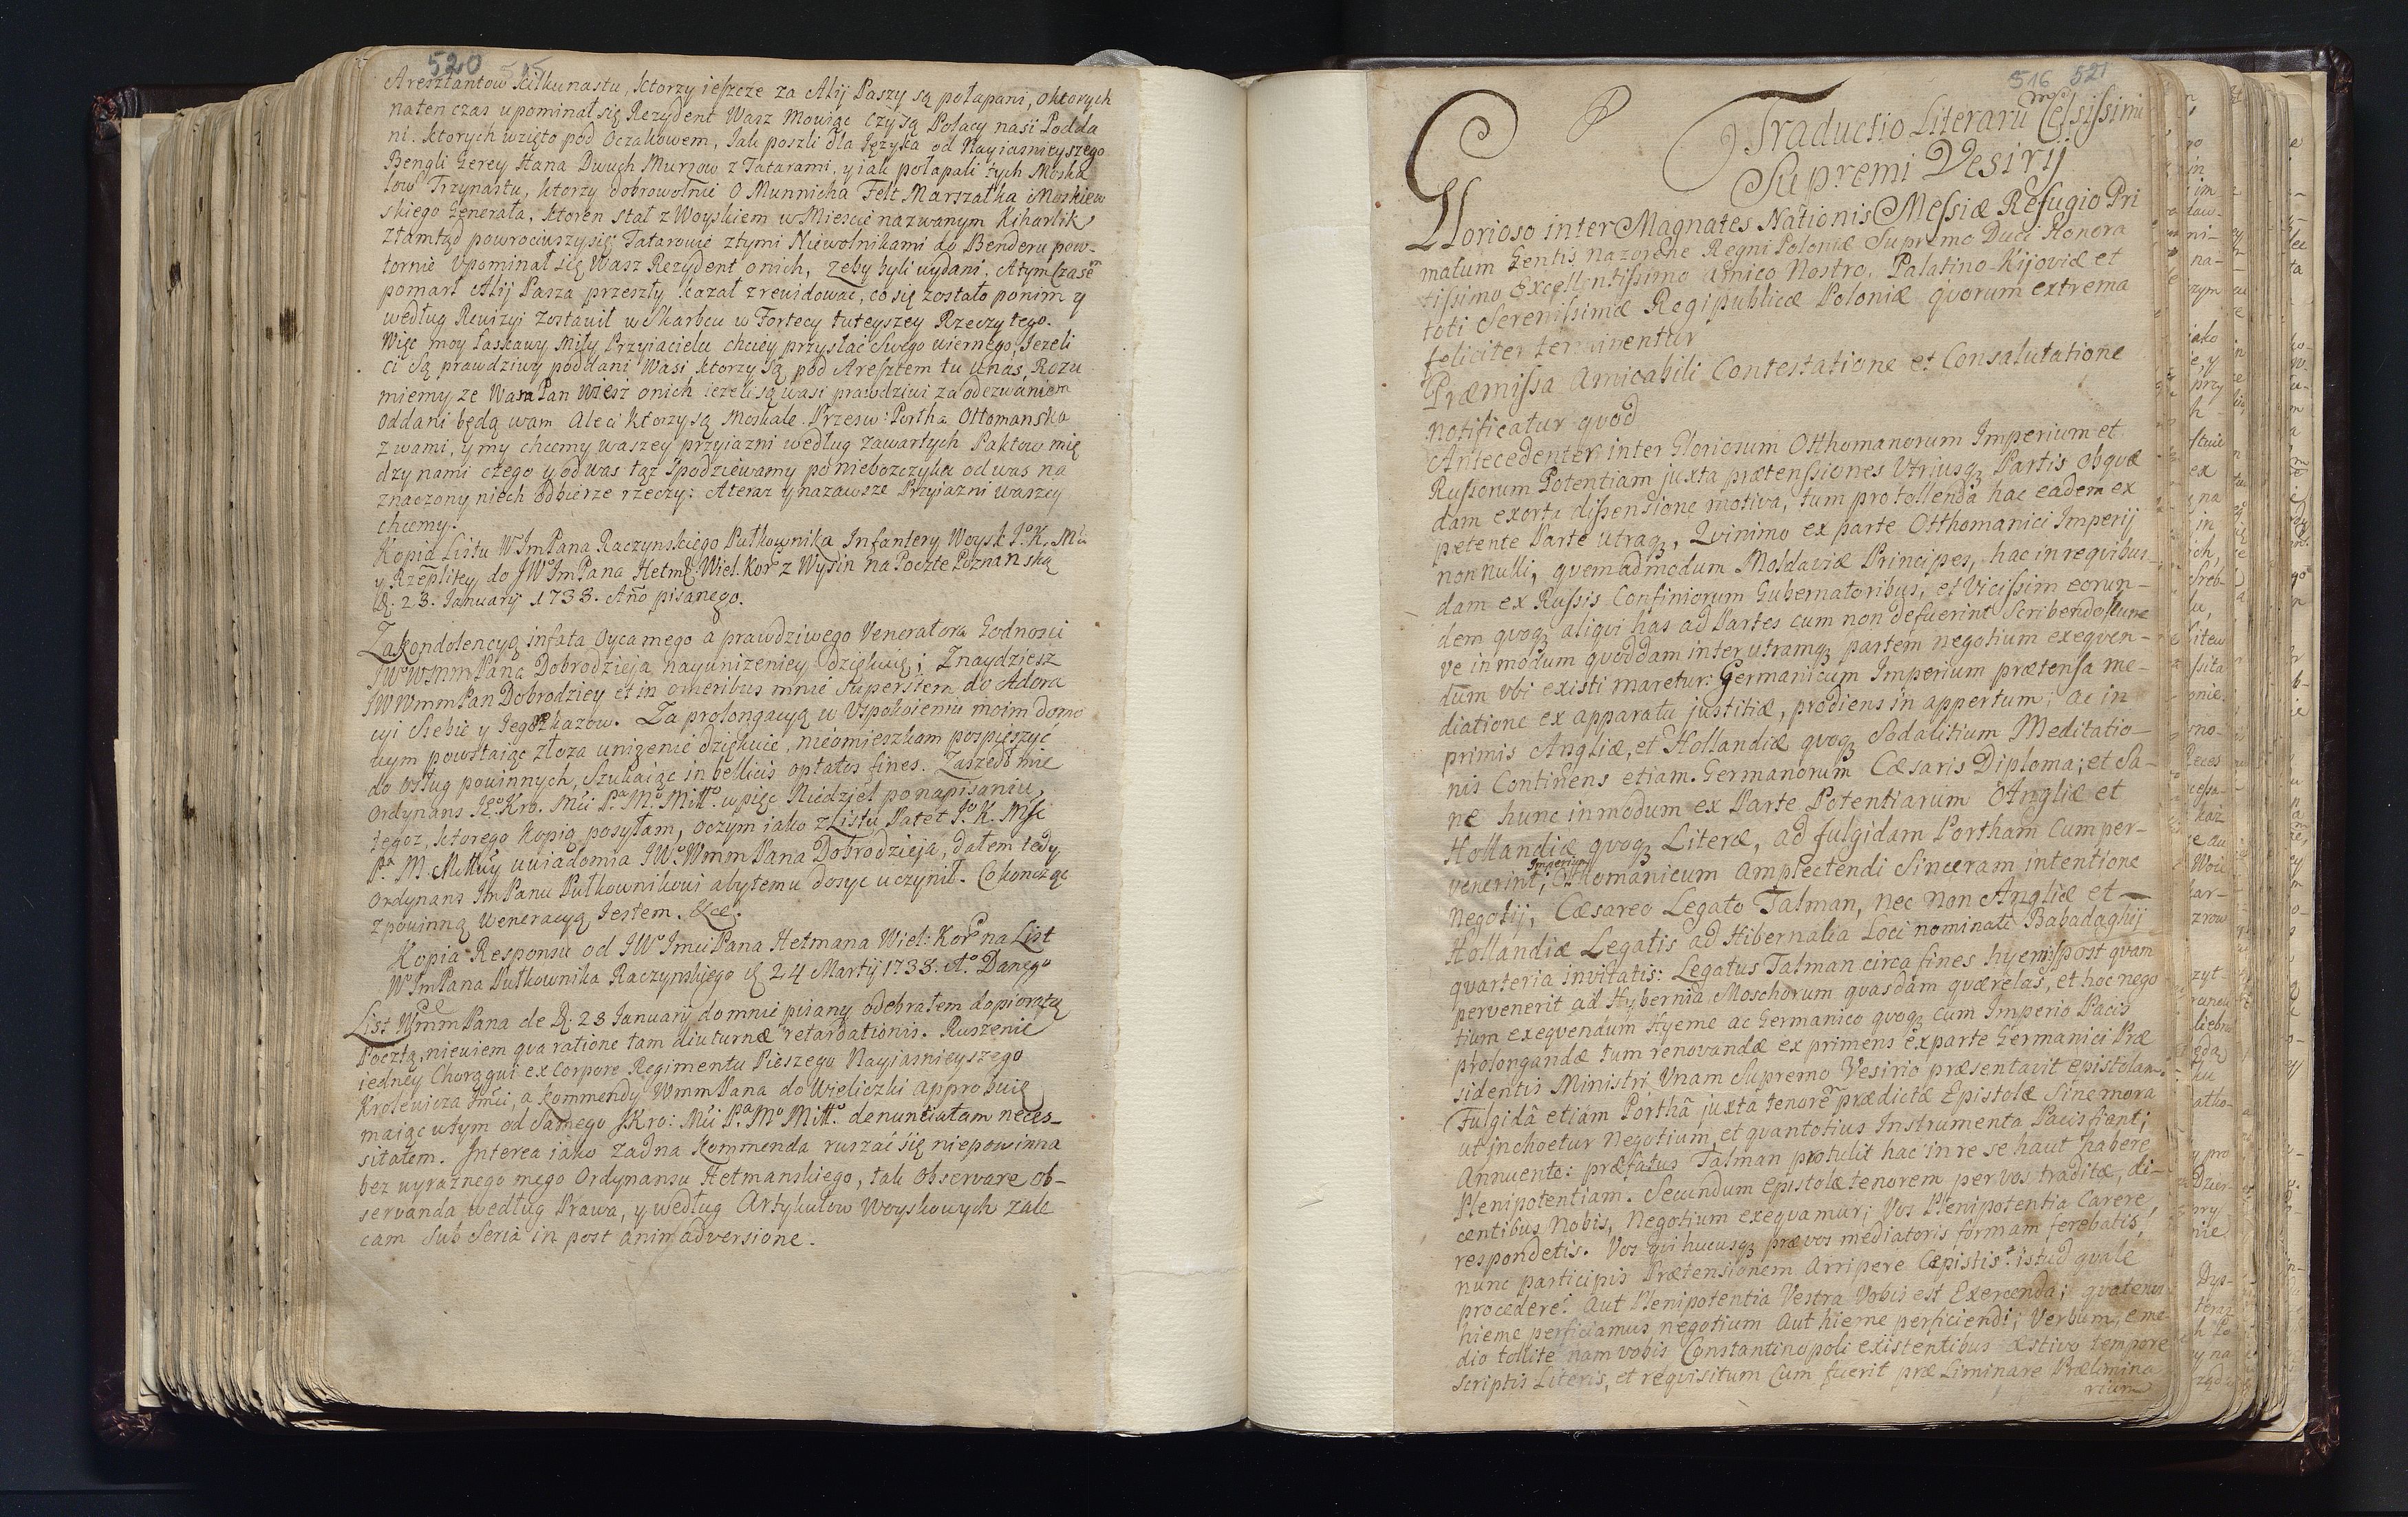 520 515
Aresztantow kilkunastu, ktorzy ieszcze za Alij Paszy są połapani, o ktorych
naten czas upominał się Rezydent Wasz Mowiąc czy są Polacy nasi Podda
ni. ktorych wzięto pod Oczakowem, Jak poszli dla Języka od Nayiasnieyszego
Bengli Gerey Hana Dwuch Murzow z Tatarami, y iak połapali tych Moska
low Trzynastu, ktorzy dobrowolnie o Munnicha Felt Marszałka Moskiew
skiego Generała, ktoren stał z Woyskiem w Miescie nazwanym Kiharlik
ztamtąd powrociwszy się Tatarowie z tymi Niewolnikami do Benderu pow-
tornie Vpominał się Wasz Rezydent o nich, zeby byli wydani. A tym czasem
pomarł Alij Pasza przeszły kazał zrewidowac, co się zostało po nim y
według Rewizyi zostawił w Skarbcu w Fortecy tuteyszey Rzeczy tego.
Więc moy łaskawy Miły Przyiacielu chciey przysłać Swego wiernego, Jezeli
ci są prawdziwy poddani Wasi ktorzy są pod Aresztem tu u nas, Rozu
miemy ze Wasz Pan wiesz o nich iezeli są wasi prawdziwi za odezwaniem
Oddani będą wam Ale ci ktorzy są Moskale. Przesw: Portha Ottomanska
z wami, y my chcemy waszey przyiazni według zawartych Paktow mię
dzy nami czego y od was tąż spodziewamy po nieboszczyku od was na
znaczony niech odbierze rzeczy: A teraz y nazawsze Przyiazni waszey
chcemy.
Kopia Listu W Im Pana Raczynskiego Pułkownika Infantery Woysk J.K. Mci
y Rzeplitey do JW Im Pana Hetma. Wiel. Kor. z Wysin na Poczte Poznanską
D. 23. Ianuarij 1738. Año pisanego.
Za kondolencyą in fata Oyca mego a prawdziwego Veneratora Godnosci
JWo WImm Pana Dobrodzieja nayunizeniey dziękuię; Znaydziesz
JW Wmm Pan Dobrodziey et in omeribus mnie Superstem do Adora
cyi Siebie y Jego rozkazow. Za prolongacyą w Vspokoieniu moim domo
wym powstaiąc z łoza unizenie dziękuie, nieomieszkam pospięszyc
do usług powinnych, szukaiąc in bellicis optatos fines. Zaszedł mie
Ordynans Jo Kro. Mci Pa Mo Mitto w pięc Niedziel po napisaniu,
tegoz, ktorego kopią posyłam, o czym iako z Listu Patet Jo. K. Msc
Pa M. Mttwy uwiadomia JWo Wmm Pana Dobrodzieja, dałem tedy
Ordynans Im Panu Pułkownikowi aby temu dosyc uczynił. Co koncząc
z powinną Weneracyą Jestem. &cæ.
Kopia Responsu od JWo Imci Pana Hetmana Wiel: Kor na List
Wo Im Pana Pułkownika Raczynskiego D. 24 Martij 1738. Ao Danego
List Wmm Pana de D. 23 Ianuarij do mnie pisany odebrałem dopiero tą
Pocztą, niewiem qva ratione tam diuturnæ retardationis. Ruszenie
iedney Chorągwi ex Corpore Regimentu Pieszego Nayjasnieyszego
Krolewicza Imci, a kommendy Wmm Pana do Wieliczki approbuię
maiąc w tym od Samego JKro: Mci Pa Mo Mitto. denunciatam neces-
sitatem. Interea iako zadna Kommenda ruszać się niepowinna
bez wyraznego mego Ordynansu Hetmanskiego, tak observare ob-
servanda według Prawa, y według Artykułow Woyskowych zale
cam Sub Seria in post animadversione.
516 521
Traductio Literarū Celsissimi
Supremi Vesirij
Glorioso inter Magnates Nationis Messiæ Refugio Pri
matum Gentis Nazorene Regni Poloniæ Supremo Duci Honora
tissimo Excellentissimo Amico Nostro, Palatino Kijoviæ et
toti Serenissimæ Reipublicæ Poloniæ qvorum extrema
feliciter terminentur
Præmissa Amicabili Contestatione et Consalutatione
notificatur qvod
Antecedenter inter Gloriosum Otthomanorum Imperium et
Russorum Potentiam juxta prætensiones Vtriusq Partis obqvæ
dam exorta dissensione motiva, tum pro tollenda hac eadem ex
petente Parte utraq, Qvinimo ex parte Otthomanici Imperij
non nulli, qvemadmodum Moldaviæ Principes, hac in re qvibus-
dam ex Russis Confiniorum Gubernatoribus, et Vicissim eorun-
dem qvoq aliqvi has ad Partes cum non defuerint Scribendo tunc
ve in modum qvoddam inter utramq partem negotium exeqven-
dum vbi existimaretur: Germanicum Imperium prætensa me-
diatione ex apparatu justitiæ, prodiens in appertum; ac in
primis Angliæ, et Hollandiæ qvoq Sodalitium Meditatio-
nis Continens etiam Germanorum Cæsaris Diploma; et Sa-
ne hunc in modum ex Parte Potentiarum Angliæ et
Hollandiæ qvoq Literæ, ad fulgidam Portham Cum per-
venerint, Imperium Otthomanicum Amplectendi Sinceram intentione
Negotij, Cæsareo Legato Talman, nec non Angliæ et
Hollandiæ Legatis ad Hibernalia Loci nominati Babadaghij
qvarteria invitatis: Legatus Talman circa fines hyemis post qvam
pervenerit ad Hybernia, Moschorum qvasdam qværelas, et hoc nego
tium exeqvendum Hyeme ac Germanico qvoq cum Imperio Pacis
prolongandæ tum renovandæ exprimens ex parte Germanici Præ
sidentis Ministri Vnam Supremo Vesirio præsentavit epistolam.
Fulgidâ etiam Porthâ juxta tenorē prædictæ Epistolæ Sine mora
ut inchoetur Negotium, et qvantotius Instrumenta Pacis fiant;
Annuente: præfatus Talman protulit hac in re se haut habere
Plenipotentiam. Secundum epistolæ tenorem per vos traditæ, di-
centibus Nobis, Negotium exeqvamur; Vos Plenipotentia Carere,
respondetis. Vos qvi hucusq præ vos mediatoris formam ferebatis,
nunc participis Prætensionem Arripere Cæpistis: istud qvale
procedere? Aut Plenipotentia Vestra Vobis est Exercenda; qvatenus
hieme perficiamus negotium Aut hieme perficiendi; Verbum, e me
dio tollite nam vobis Constantinopoli existentibus æstivo tempore
scriptis Literis, et reqvisitum Cum fuerit præ Liminare Prælimina
rium